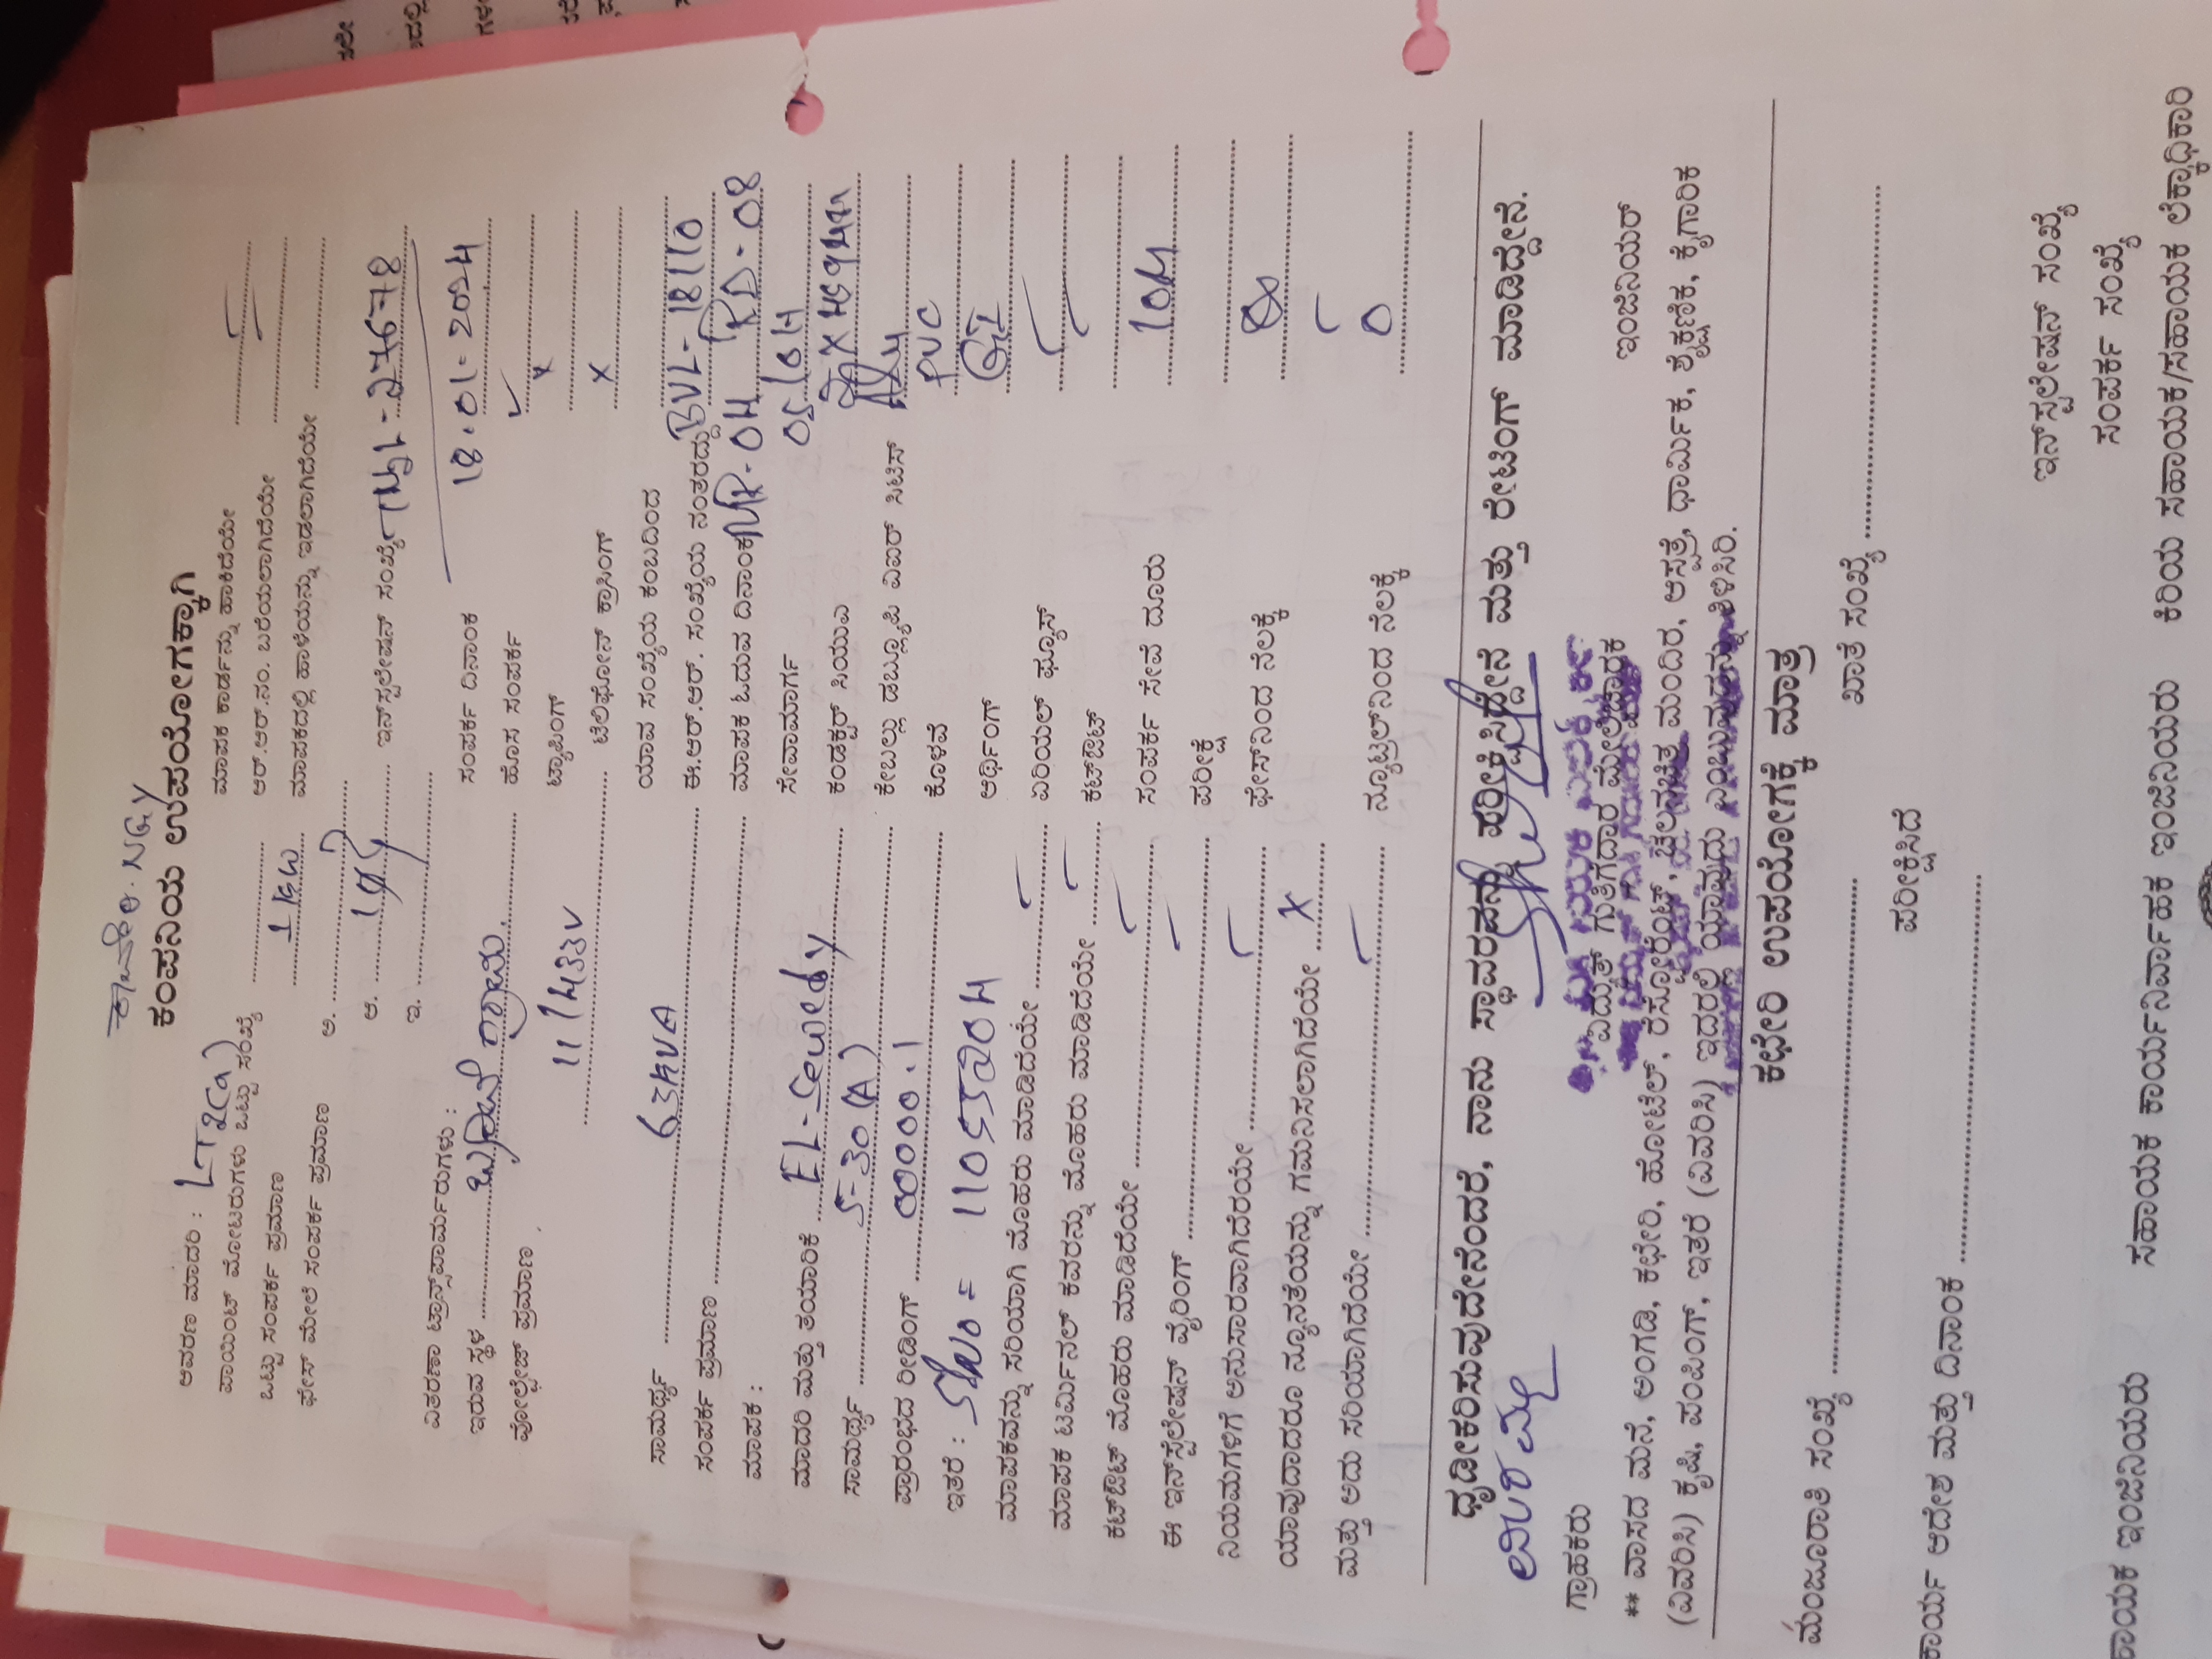 ಕಂಪನಿಯ ಉಪಯೋಗಕ್ಕಾಗಿ
ಆವರಣ ಮಾದರಿ : LT2(a)
ಪಾಯಿಂಟ್ ಮೋಟರುಗಳು ಒಟ್ಟು ಸಂಖ್ಯೆ ............ ಮಾಪಕ ಕಾರ್ಡನ್ನು ಹಾಕಿದೆಯೇ ............
ಒಟ್ಟು ಸಂಪರ್ಕ ಪ್ರಮಾಣ 1 KW ಆರ್.ಆರ್.ನಂ. ಬರೆಯಲಾಗಿದೆಯೇ ............
ಫೇಸ್ ಮೇಲೆ ಸಂಪರ್ಕ ಪ್ರಮಾಣ ಅ. ............ ಮಾಪಕದಲ್ಲಿ ಹಾಳೆಯನ್ನು ಇಡಲಾಗಿದೆಯೇ ............
ಆ. ............ ಇನ್‌ಸ್ಟಲೇಷನ್ ಸಂಖ್ಯೆ
ಇ. ............
ವಿತರಣಾ ಟ್ರಾನ್ಸ್‌ಫಾರ್ಮರುಗಳು : ಸಂಪರ್ಕ ದಿನಾಂಕ 18.01-2024
ಇರುವ ಸ್ಥಳ ............ ಹೊಸ ಸಂಪರ್ಕ ✓
ವೋಲ್ಟೇಜ್ ಪ್ರಮಾಣ 11/433V ಟ್ಯಾಪಿಂಗ್ x
ಟೆಲಿಫೋನ್ ಕ್ರಾಸಿಂಗ್ x
ಸಾಮರ್ಥ್ಯ 63KVA ಯಾವ ಸಂಖ್ಯೆಯ ಕಂಬದಿಂದ
ಸಂಪರ್ಕ ಪ್ರಮಾಣ ............ ಈ.ಆರ್.ಆರ್. ಸಂಖ್ಯೆಯ ನಂತರದ್ದು BVL-18110
ಮಾಪಕ : ಮಾಪಕ ಓದುವ ದಿನಾಂಕ MR-04 RD-08
ಮಾದರಿ ಮತ್ತು ತಯಾರಿಕೆ ಸೇವಾಮಾರ್ಗ
ಸಾಮರ್ಥ್ಯ 5-30 (A) ಕಂಡಕ್ಟರ್ ಸಿಯುಎ
ಪ್ರಾರಂಭದ ರೀಡಿಂಗ್ 00000.1 ಕೇಬಲ್ಲು ಡಬ್ಲ್ಯೂಪಿ ವಿಐರ್ ಸಿಟಿಸ್
ಇತರೆ : ಕೊಳವೆ PVC
ಮಾಪಕವನ್ನು ಸರಿಯಾಗಿ ಮೊಹರು ಮಾಡಿದೆಯೇ ✓ ಅರ್ಥಿಂಗ್ GI
ಮಾಪಕ ಟರ್ಮಿನಲ್ ಕವರನ್ನು ಮೊಹರು ಮಾಡಿದೆಯೇ ✓ ಏರಿಯಲ್ ಫ್ಯೂಸ್ ✓
ಕಟ್‌ಔಟ್ ಮೊಹರು ಮಾಡಿದೆಯೇ ✓ ಕಟ್‌ಔಟ್
ಈ ಇನ್‌ಸ್ಟೆಲೇಷನ್ ವೈರಿಂಗ್ ✓ ಸಂಪರ್ಕ ಸೇವೆ ದೂರು 10M
ನಿಯಮಗಳಿಗೆ ಅನುಸಾರವಾಗಿದೆರಯೇ ✓ ಪರೀಕ್ಷೆ
ಯಾವುದಾದರೂ ನ್ಯೂನತೆಯನ್ನು ಗಮನಿಸಲಾಗಿದೆಯೇ x ಫೇಸ್‌ನಿಂದ ನೆಲಕ್ಕೆ
ಮತ್ತು ಅದು ಸರಿಯಾಗಿದೆಯೇ ✓ ನ್ಯೂಟ್ರಲ್‌ನಿಂದ ನೆಲಕ್ಕೆ 0
ದೃಢೀಕರಿಸುವುದೇನೆಂದರೆ, ನಾನು ಸ್ಥಾವರವನ್ನು ಪರೀಕ್ಷಿಸಿದ್ದೇನೆ ಮತ್ತು ರೇಟಿಂಗ್ ಮಾಡಿದ್ದೇನೆ.
ಗ್ರಾಹಕರು ವಿದ್ಯುತ್ ಗುತ್ತಿಗೆದಾರ ಮೇಲ್ವಿಚಾರಕ ಇಂಜಿನಿಯರ್
** ವಾಸದ ಮನೆ, ಅಂಗಡಿ, ಕಛೇರಿ, ಹೋಟೆಲ್, ರೆಸೋರೆಂಟ್, ಚಲನಚಿತ್ರ ಮಂದಿರ, ಆಸ್ಪತ್ರೆ, ಧಾರ್ಮಿಕ, ಶೈಕ್ಷಣಿಕ, ಕೈಗಾರಿಕ
(ವಿವರಿಸಿ) ಕೃಷಿ, ಪಂಪಿಂಗ್, ಇತರೆ (ವಿವರಿಸಿ) ಇದರಲ್ಲಿ ಯಾವುದು ಎಂಬುವುದನ್ನು ತಿಳಿಸಿರಿ.
ಕಛೇರಿ ಉಪಯೋಗಕ್ಕೆ ಮಾತ್ರ
ಮಂಜೂರಾತಿ ಸಂಖ್ಯೆ ............ ಖಾತೆ ಸಂಖ್ಯೆ ............
ಪರೀಕ್ಷಿಸಿದೆ
ಕಾರ್ಯ ಆದೇಶ ಮತ್ತು ದಿನಾಂಕ ............
ಇನ್‌ಸ್ಟಲೇಷನ್ ಸಂಖ್ಯೆ
ಸಂಪರ್ಕ ಸಂಖ್ಯೆ
ಇಂಜಿನಿಯರು ಸಹಾಯಕ ಕಾರ್ಯನಿರ್ವಾಹಕ ಇಂಜಿನಿಯರು ಕಿರಿಯ ಸಹಾಯಕ/ಸಹಾಯಕ ಲೆಕ್ಕಾಧಿಕಾರಿ